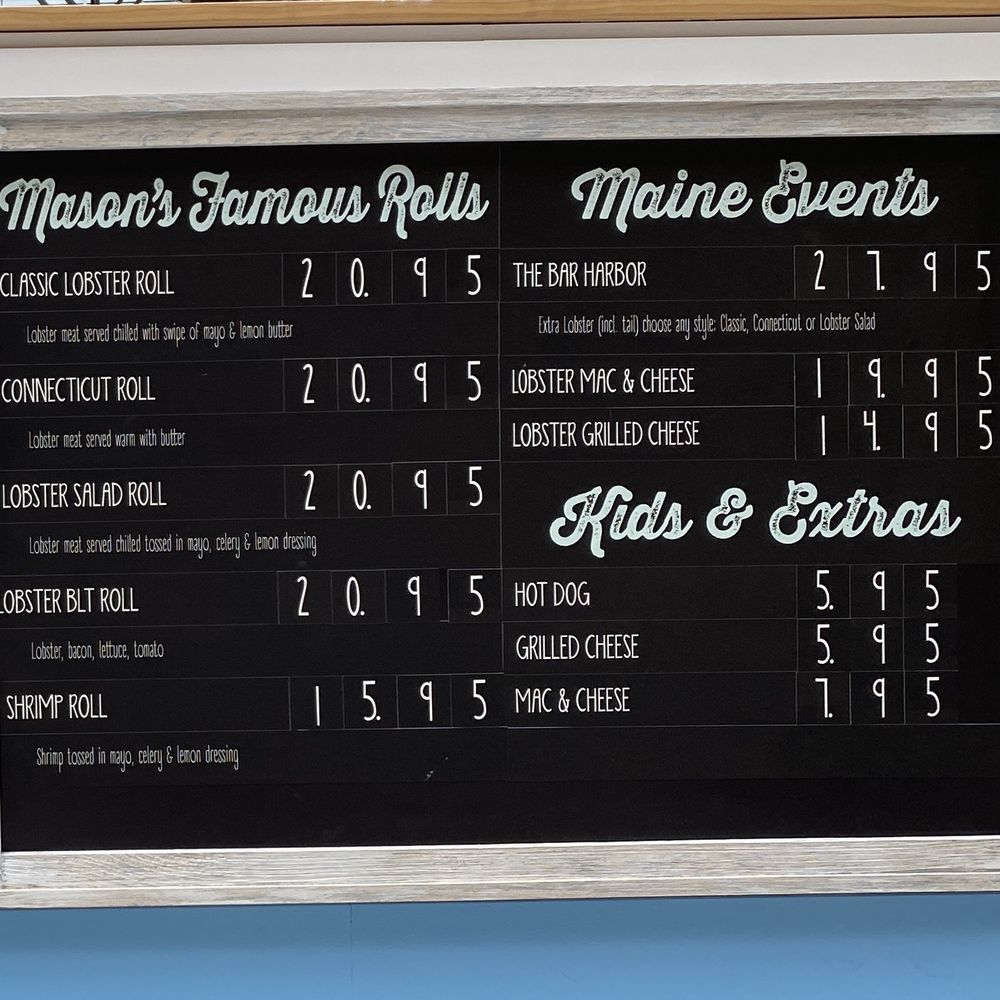 Mason's Famous Rolls
CLASSIC LOBSTER ROLL 20.95
Lobster meat served chilled with swipe of mayo & lemon butter
CONNECTICUT ROLL 20.95
Lobster meat served warm with butter
LOBSTER SALAD ROLL 20.95
Lobster meat served chilled tossed in mayo, celery & lemon dressing
LOBSTER BLT ROLL 20.95
Lobster, bacon, lettuce, tomato
SHRIMP ROLL 15.95
Shrimp tossed in mayo, celery & lemon dressing
Maine Events
THE BAR HARBOR 27.95
Extra Lobster (incl. tail) choose any style: Classic, Connecticut or Lobster Salad
LOBSTER MAC & CHEESE 19.95
LOBSTER GRILLED CHEESE 14.95
Kids & Extras
HOT DOG 5.95
GRILLED CHEESE 5.95
MAC & CHEESE 7.95